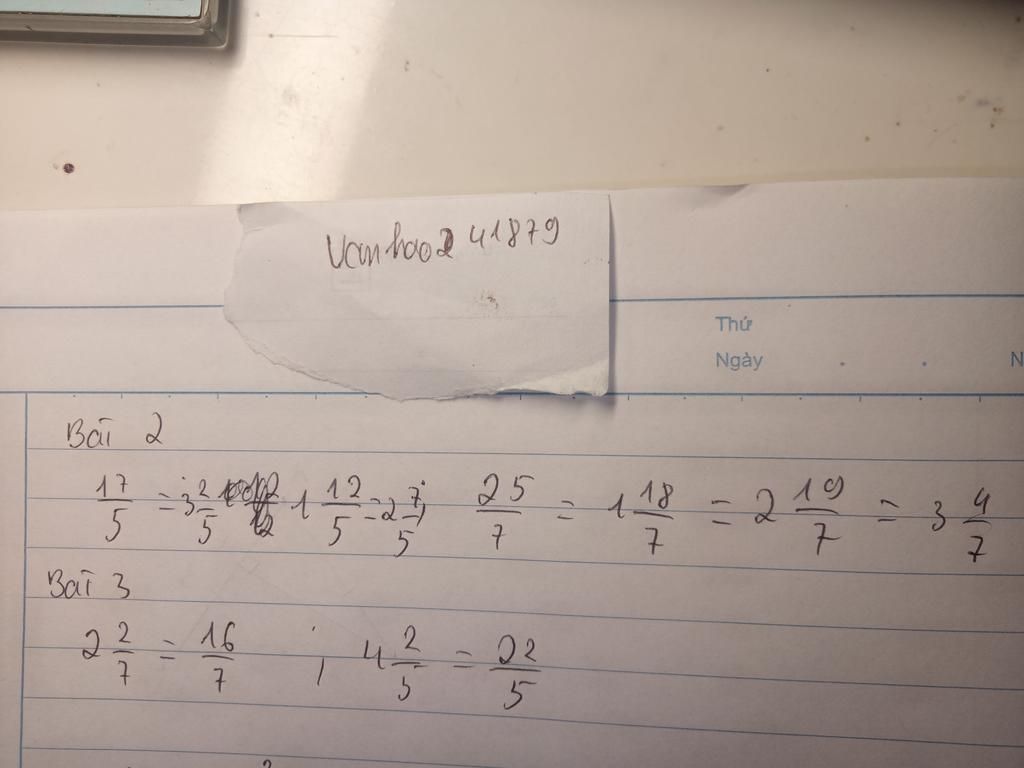 Vanhao2 41879
Thứ
Ngày
N
Bài 2
17/5 = 3 2/5 1 12/5 = 2 7/5; 25/7 = 1 18/7 = 2 19/7 = 3 4/7
Bài 3
2 2/7 = 16/7 ; 4 2/5 = 22/5